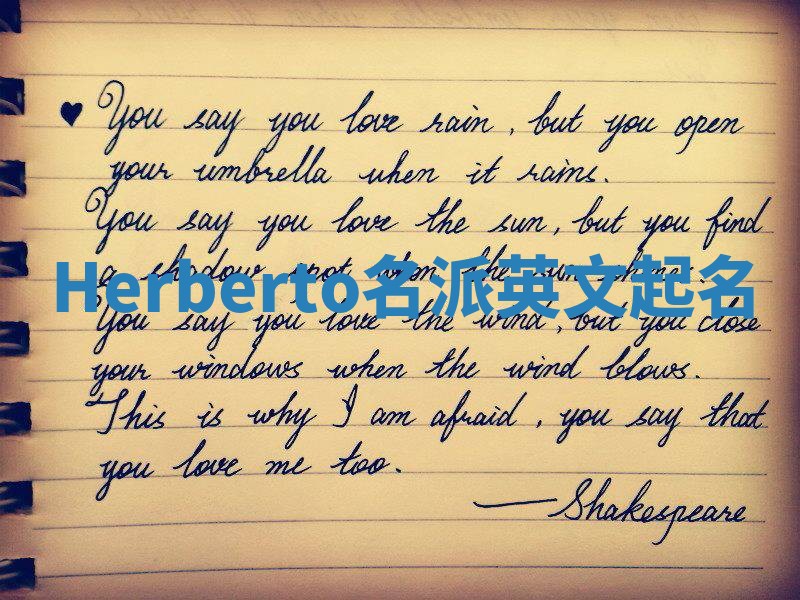 ♥ You say you love rain, but you open
your umbrella when it rains.
You say you love the sun, but you find
a shadow spot when the sun shines.
Herberto名派英文起名
You say you love the wind, but you close
your windows when the wind blows.
This is why I am afraid, you say that
you love me too.
—Shakespeare